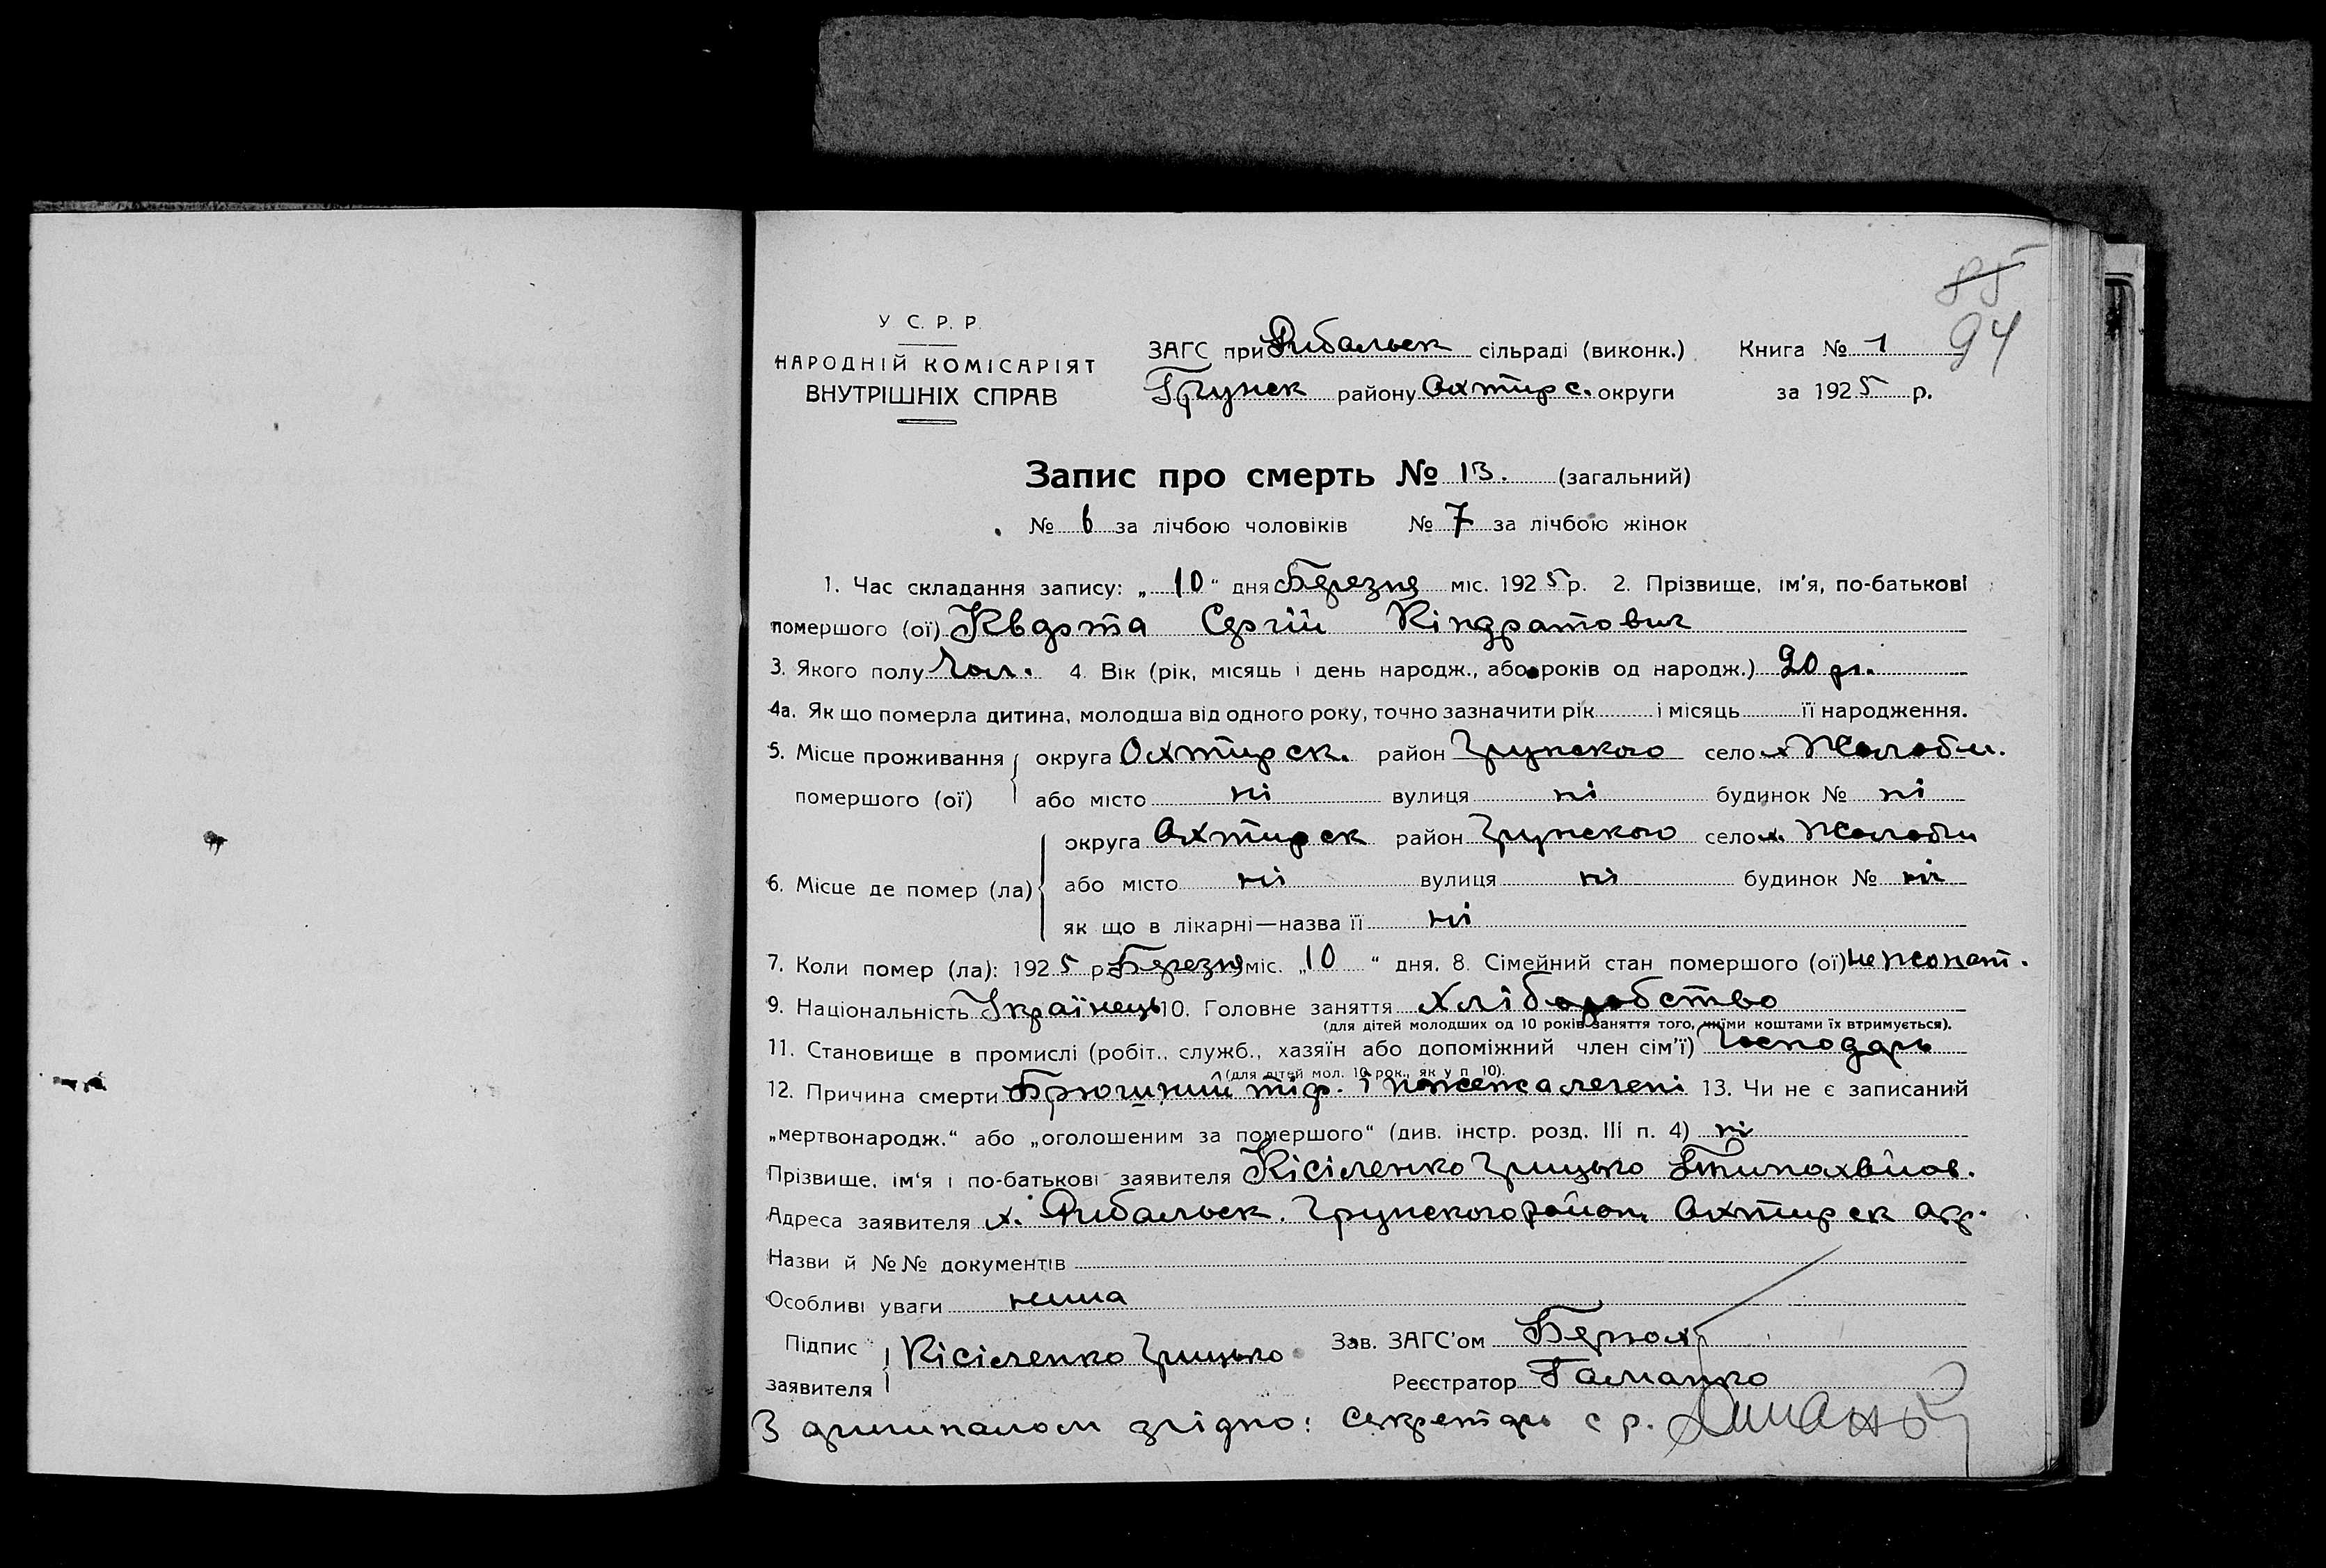 85
94
У С. Р. Р.
НАРОДНІЙ КОМІСАРІЯТ
ВНУТРІШНІХ СПРАВ
ЗАГС при Рибальск сільраді (виконк.) Книга № 1
Грунськ району Охтирс. округи за 1925 р.
Запис про смерть № 13. (загальний)
№ 6 за лічбою чоловіків № 7 за лічбою жінок
1. Час складання запису: „10“ дня Березня міс. 1925 р. 2. Прізвище, ім'я, по-батькові
помершого (ої) Квдрта Сергій Кіндратович
3. Якого полу Чол. 4. Вік (рік, місяць і день народж., або років од народж.) 20 р.
4а. Як що померла дитина, молодша від одного року, точно зазначити рік і місяць її народження.
5. Місце проживання помершого (ої) округа Охтирск. район Грунского село х Жолоби.
або місто ні вулиця ні будинок № ні
6. Місце де помер (ла) округа Охтирск район Грунского село х. Жолоби
або місто ні вулиця ні будинок № ні
як що в лікарні—назва її ні
7. Коли помер (ла): 1925 р. Березня міс. „10“ дня. 8. Сімейний стан помершого (ої) нежонат.
9. Національність Українець 10. Головне заняття хліборобство
(для дітей молодших од 10 років заняття того, чиїми коштами їх втримується).
11. Становище в промислі (робіт., служб., хазяїн або допоміжний член сім'ї) Господарь
(для дітей мол. 10 рок., як у п. 10).
12. Причина смерти Брюшний тіф. і легені 13. Чи не є записаний
„мертвонародж.“ або „оголошеним за помершого“ (див. інстр. розд. III п. 4) ні
Прізвище, ім'я і по-батькові заявителя Кісіленко Грицько
Адреса заявителя х. Рибальск. Грунского район. Охтирск окр.
Назви й №№ документів
Особливі уваги нима
Підпис заявителя Кісіленко Грицько Зав. ЗАГС'ом
Реєстратор Гаманко
З оригиналом згідно: Секретарь с р.